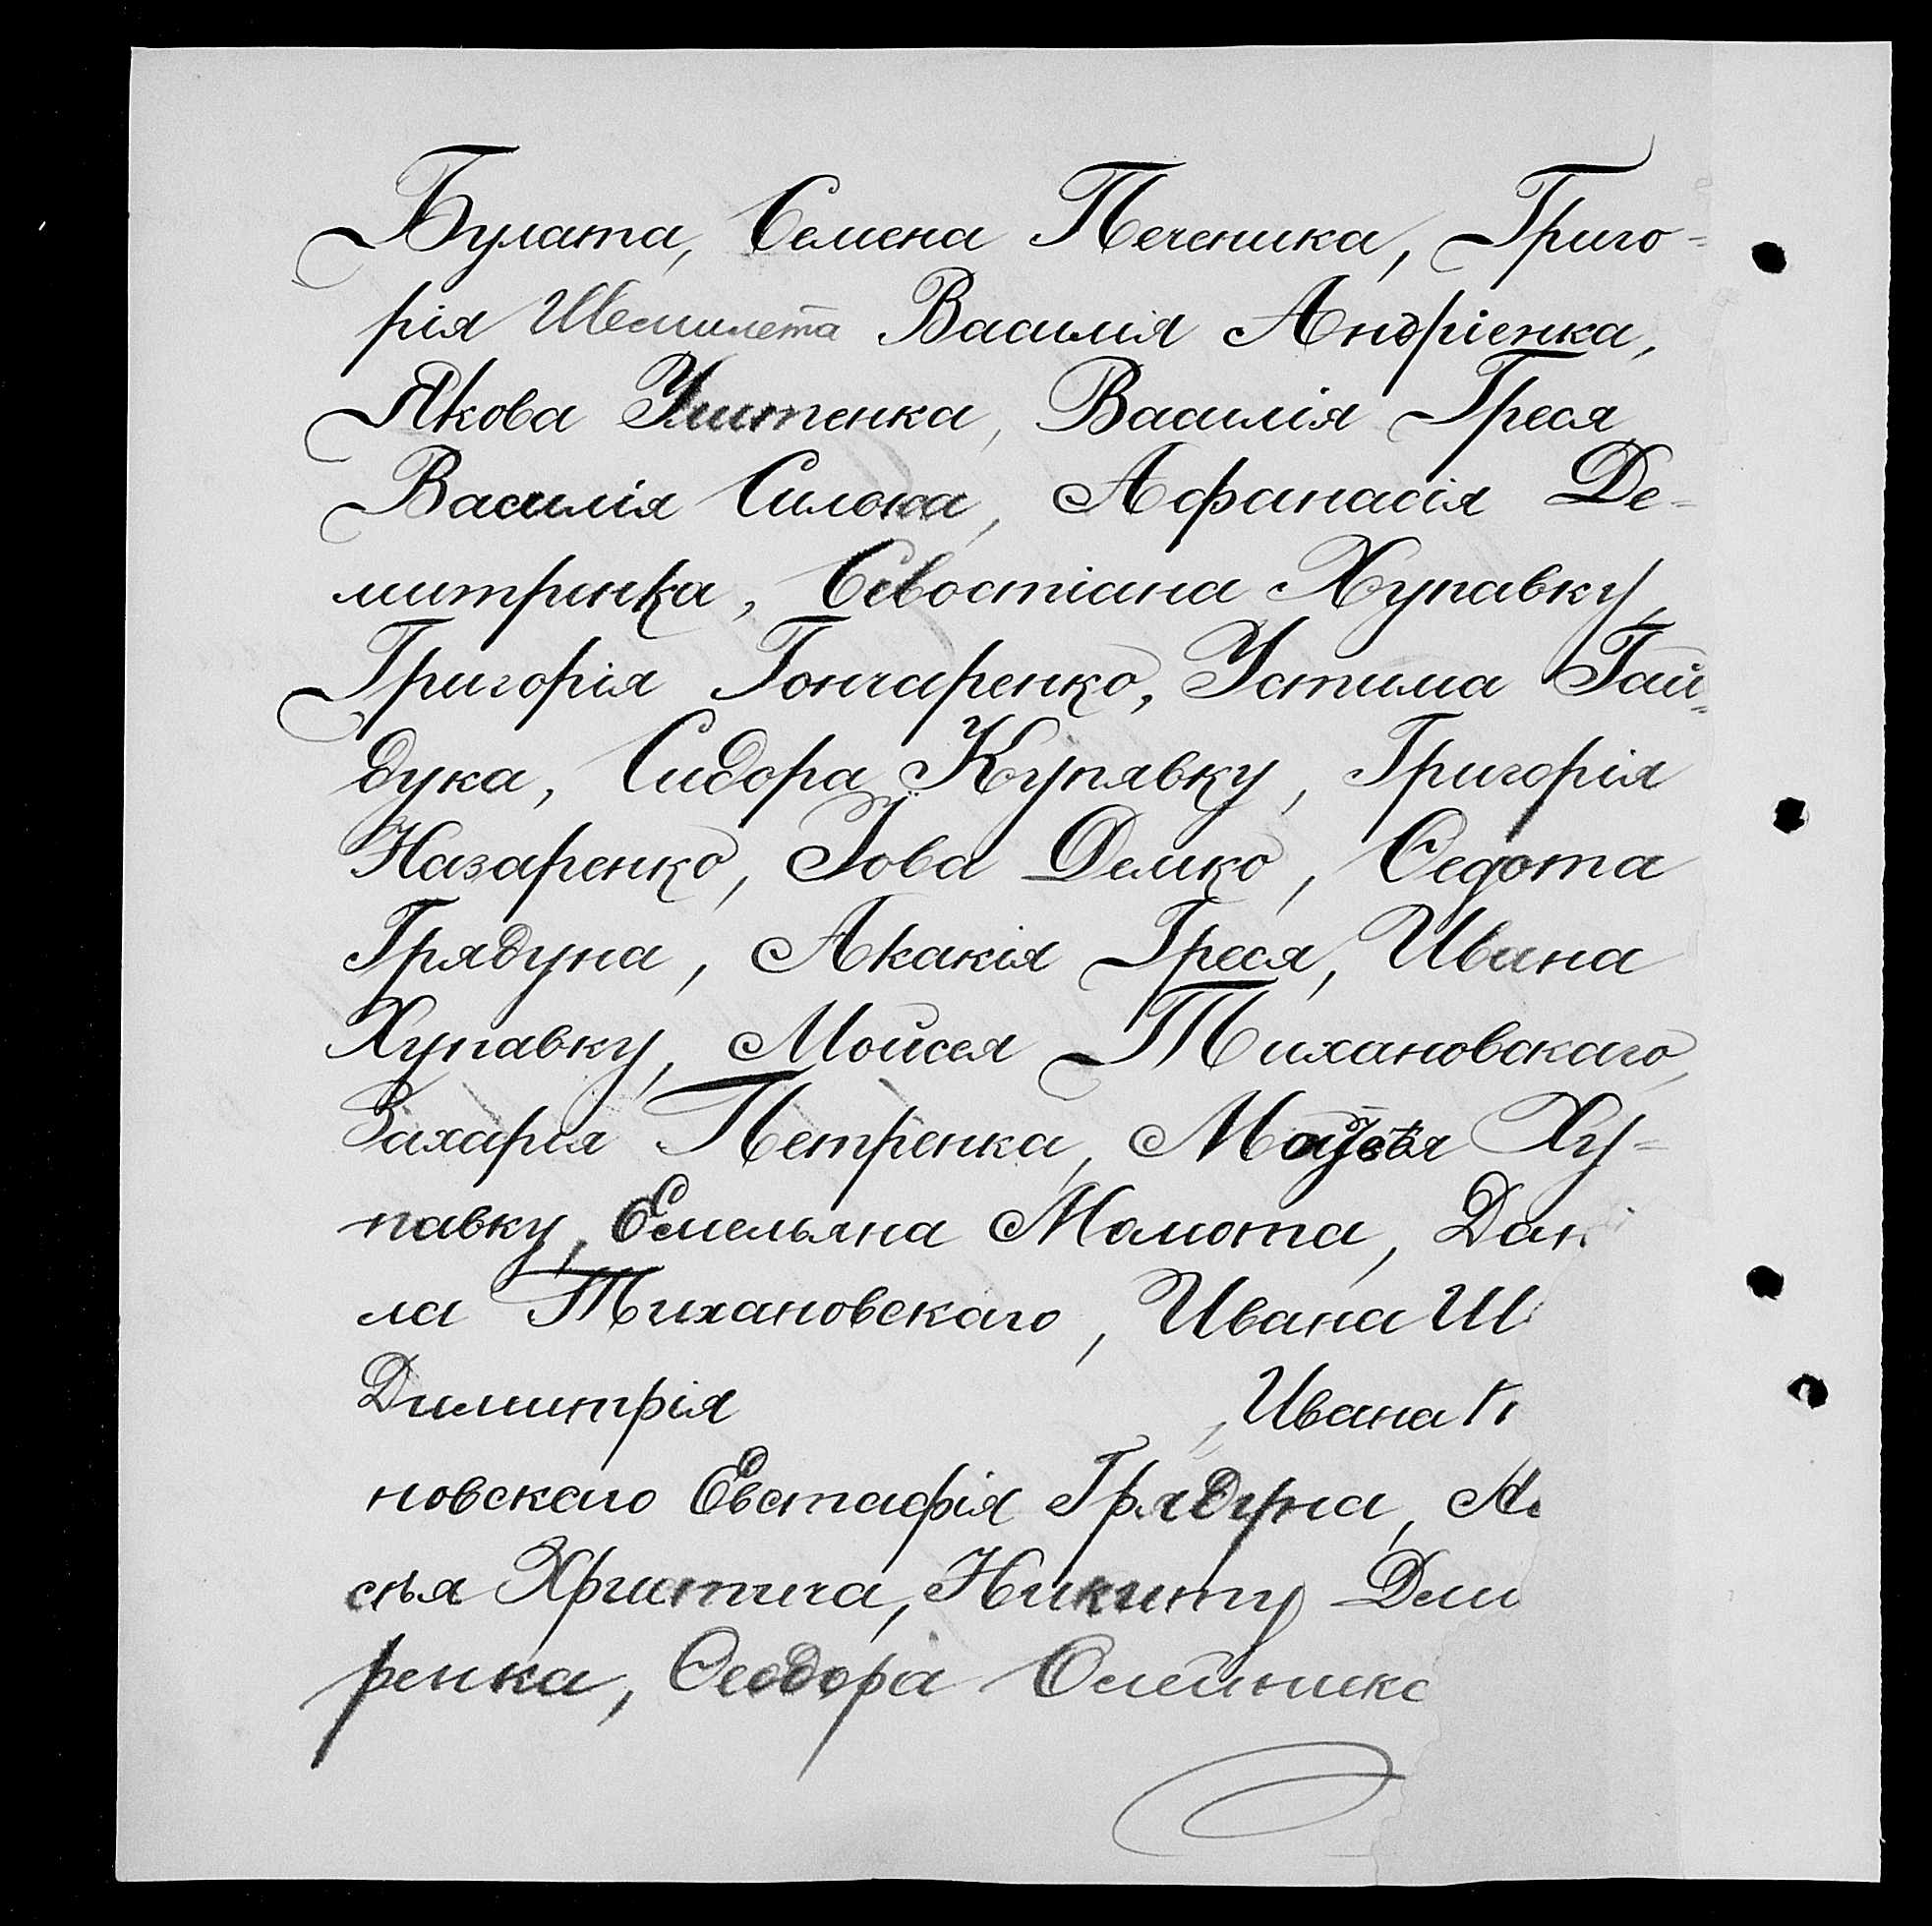 Булата, Семена Печеника, Григо-
рія Шемшлета Василія Андріенка,
Якова Уштенка, Василія Греся
Василія Силока, Афанасія Де-
митренка, Севостіана Хупавку,
Григорія Гончаренко, Устима Гай-
дука, Сидора Купявку, Григорія
Назаренко, Іова Демко, Ѳедота
Грядуна, Акакія Греся, Ивана
Хупавку, Мойсея Тихановскаго,
Захарія Петренка, Моѵсѣя Ху-
павку, Емельяна Момота, Дан
ла Тихановскаго, Ивана Ш
Димитрія , Ивана
новскаго Евстафія Грядуна,
сѣя Христича, Никиту Дем
ренка, Ѳеодора Олейника